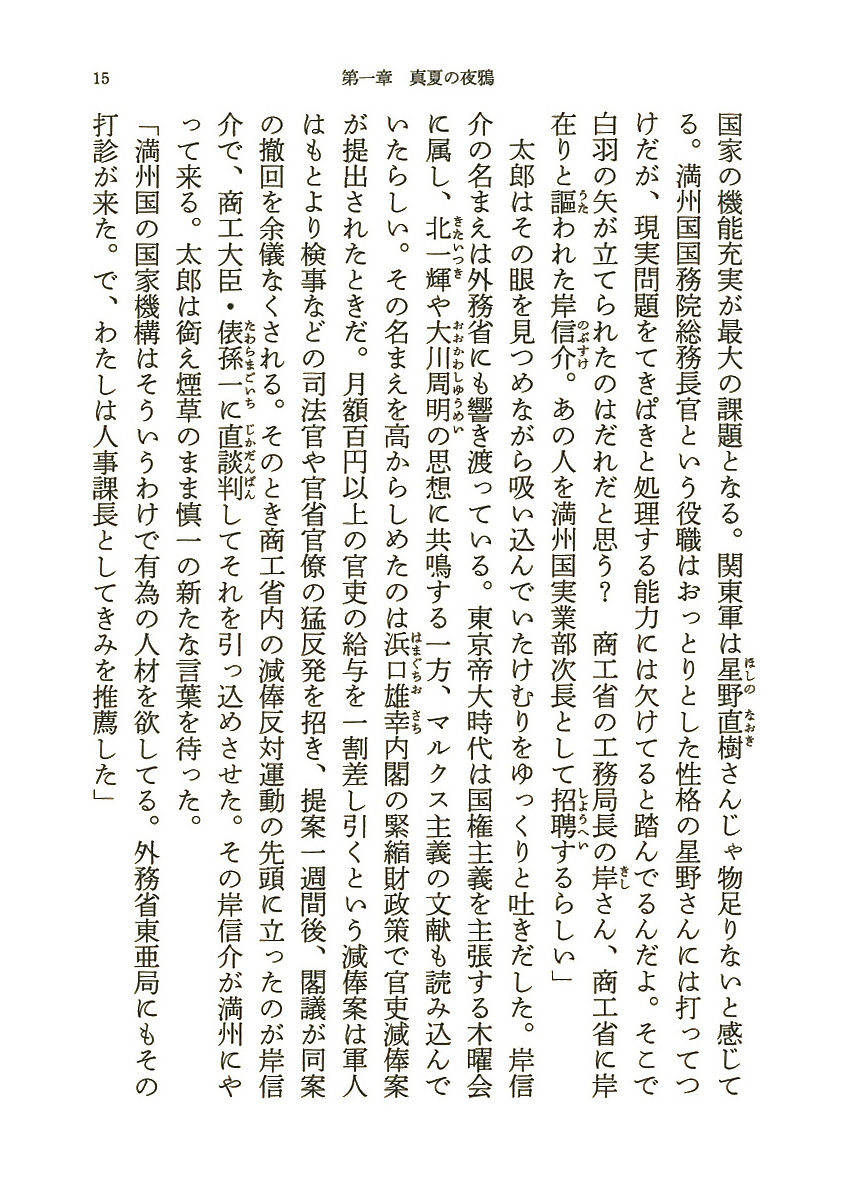 15
第一章　真夏の夜鴉
国家の機能充実が最大の課題となる。関東軍は星野直樹さんじゃ物足りないと感じて
る。満州国国務院総務長官という役職はおっとりとした性格の星野さんには打ってつ
けだが、現実問題をてきぱきと処理する能力には欠けてると踏んでるんだよ。そこで
白羽の矢が立てられたのはだれだと思う？　商工省の工務局長の岸さん、商工省に岸
在りと謳われた岸信介。あの人を満州国実業部次長として招聘するらしい」
　太郎はその眼を見つめながら吸い込んでいたけむりをゆっくりと吐きだした。岸信
介の名まえは外務省にも響き渡っている。東京帝大時代は国権主義を主張する木曜会
に属し、北一輝や大川周明の思想に共鳴する一方、マルクス主義の文献も読み込んで
いたらしい。その名まえを高からしめたのは浜口雄幸内閣の緊縮財政策で官吏減俸案
が提出されたときだ。月額百円以上の官吏の給与を一割差し引くという減俸案は軍人
はもとより検事などの司法官や官省官僚の猛反発を招き、提案一週間後、閣議が同案
の撤回を余儀なくされる。そのとき商工省内の減俸反対運動の先頭に立ったのが岸信
介で、商工大臣・俵孫一に直談判してそれを引っ込めさせた。その岸信介が満州にや
って来る。太郎は銜え煙草のまま慎一の新たな言葉を待った。
「満州国の国家機構はそういうわけで有為の人材を欲してる。外務省東亜局にもその
打診が来た。で、わたしは人事課長としてきみを推薦した」